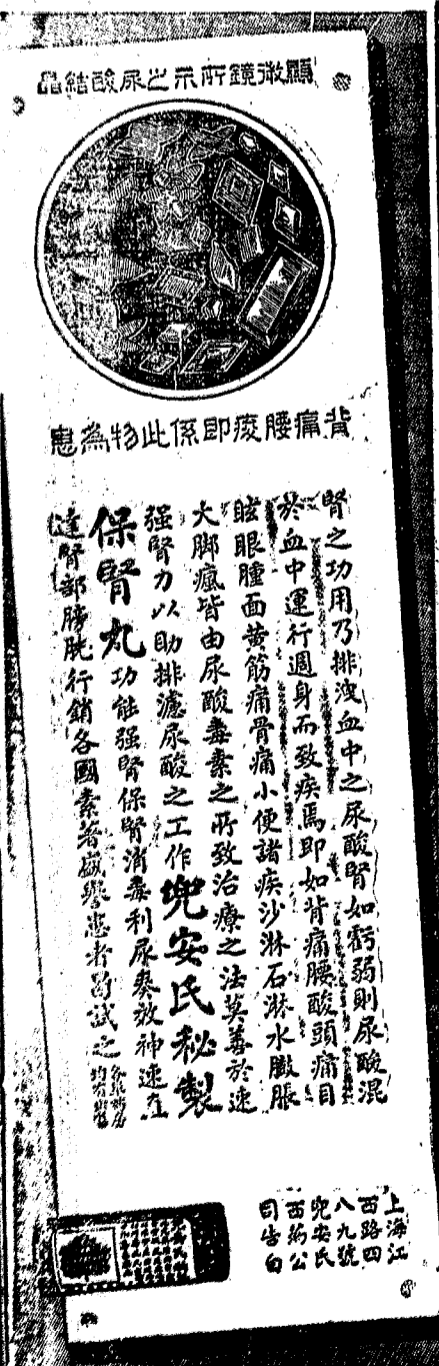 顯微鏡所示之尿酸結晶
背痛腰痠即係此物為患
腎之功用乃排洩血中之尿酸腎如虧弱則尿酸混
於血中運行週身而致疾焉即如背痛腰酸頭痛目
眩眼腫面黃筋痛骨痛小便諸疾沙淋石淋水臌脹
大脚瘋皆由尿酸毒素之所致治療之法莫善於速
强腎力以助排濾尿酸之工作兜安氏秘製
保腎丸功能强腎保腎消毒利尿奏效神速直
達腎部膀胱行銷各國素著盛譽患者曷試之
上海江
西路四
八九號
兜安氏
西葯公
司告白